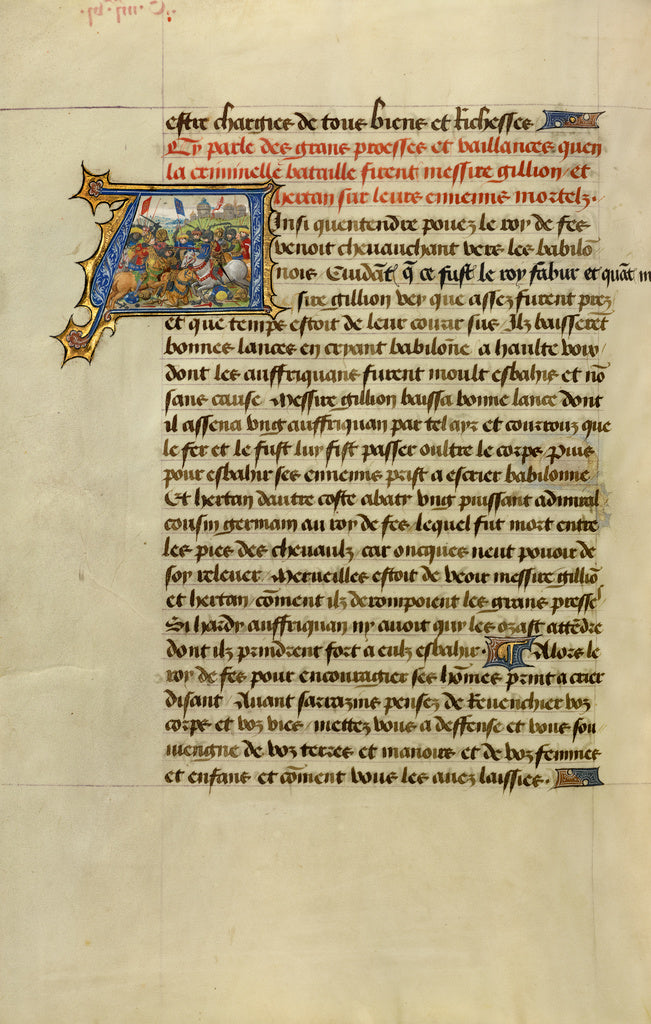 estre chargies de tous biens et Richesses
Cy parle des grans proesses et vaillances quen
la criminelle bataille firent messire gillion et
hertan sur leurs ennemis mortelz.
Ainsi quentendre pouez le roy de fes
venoit cheuauchant vers les babilō
nois Cuidāt q̄ ce fust le roy fabur et quāt m
sire gillion vey que assez furent prez
et que temps estoit de leur courir sus Ilz baisserēt
bonnes lances en cryant babilōne a haulte voix
dont les auffriquans furent moult esbahis et nō
sans cause Messire gillion baissa bonne lance dont
il assena vng auffriquan par tel ayr et courroux que
le fer et le fust luy fist passer oultre le corps Puis
pour esbahir ses ennemis prist a escrier babilonne
Et hertan dautre coste abaty vng puissant admiral
cousin germain au roy de fes lequel fut mort entre
les pies des cheuaulz car oncques neut pouoir de
soy releuer Merueilles estoit de veoir messire gilliō
et hertan cōment ilz derompoient les grans presses
Si hardy auffriquan ny auoit quy les ozast attēdre
dont ilz prindrent fort a eulz esbahir. Alors le
roy de fes pour encouragier ses hōmes print a crier
disant Auant sarrazins pensez de Reuenchier voz
corps et voz vies mettez vous a deffense et vous sou
uiengne de voz terres et manoirs et de voz femmes
et enfans et cōment vous les auez laissies.